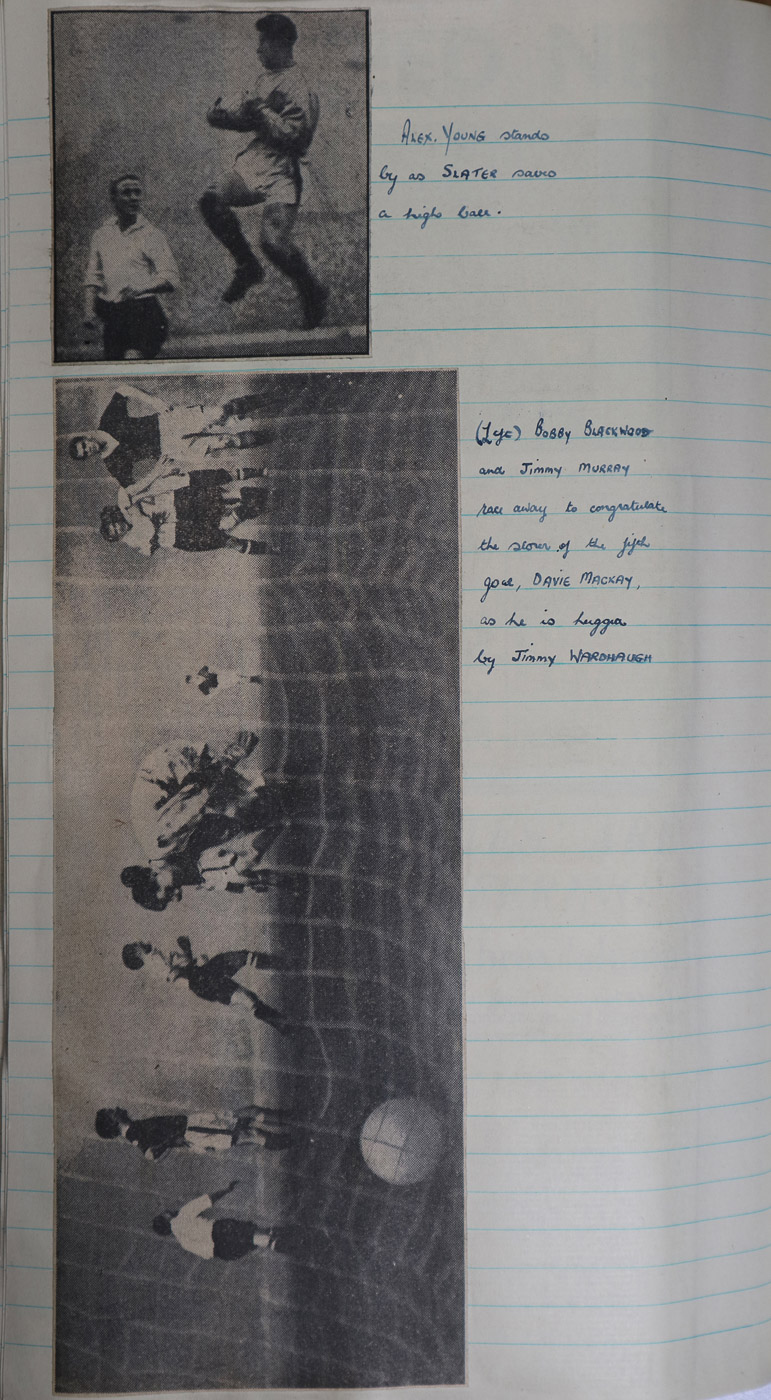 ALEX. YOUNG stands
by as SLATER saves
a high ball.
(Left) BOBBY BLACKWOOD
and Jimmy MURRAY
race away to congratulate
the scorer of the fifth
goal, DAVIE MACKAY,
as he is hugged
by Jimmy WARDHAUGH